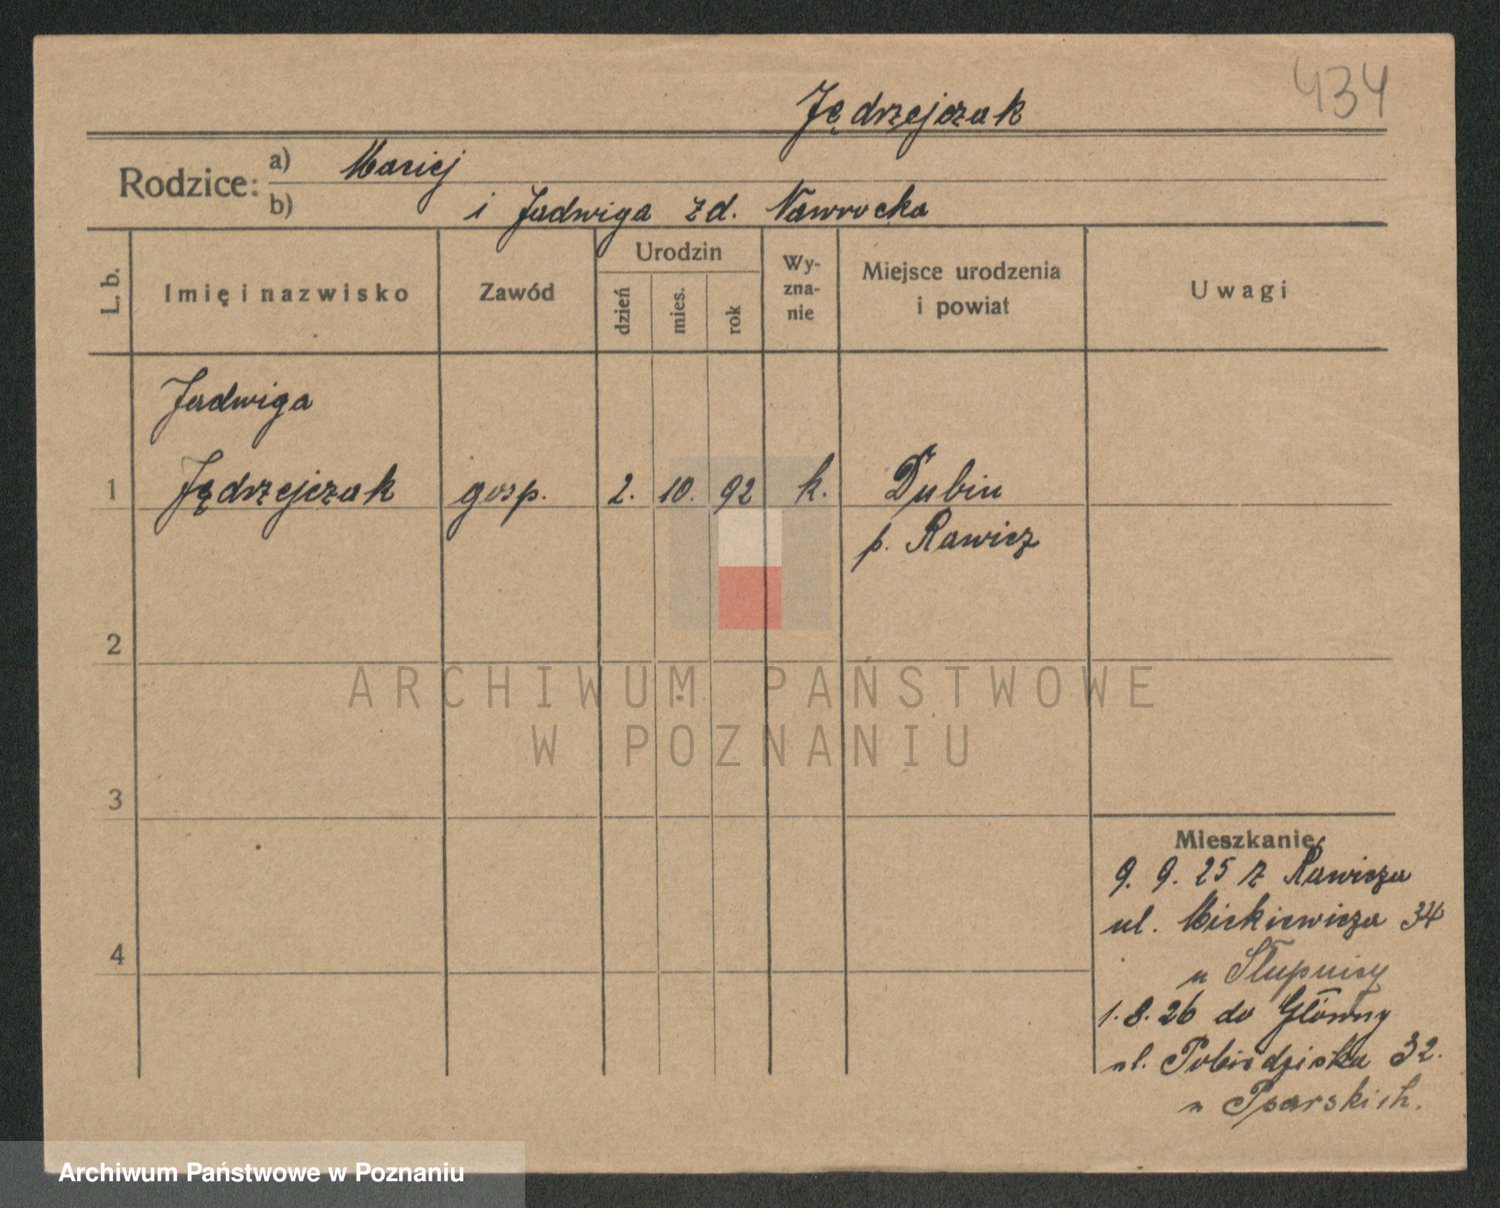 434
Jędrzejczak
Rodzice: a) Maciej
b) i Jadwiga zd. Nawrocka
L. b.
Imię i nazwisko
Zawód
Urodzin
dzień
mies.
rok
Wy-
zna-
nie
Miejsce urodzenia
i powiat
Uwagi
Jadwiga
1 Jędrzejczak gosp. 2. 10. 92 k. Dubin
p. Rawicz
2
ARCHIWUM PAŃSTWOWE
W POZNANIU
3
Mieszkanie
9. 9. 25 z Rawicza
ul. Mickiewicza 34
4
u Słupnicy
1. 8. 26 do Główny
ul. Pobiedziska 32.
u Psarskich.
Archiwum Państwowe w Poznaniu